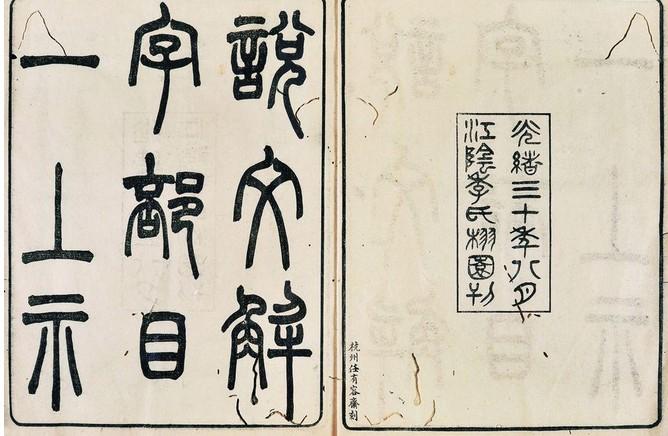 光緒三十年八月
江陰季氏栩園刊
杭州任有容齋刻
說文解
字部目
一上示